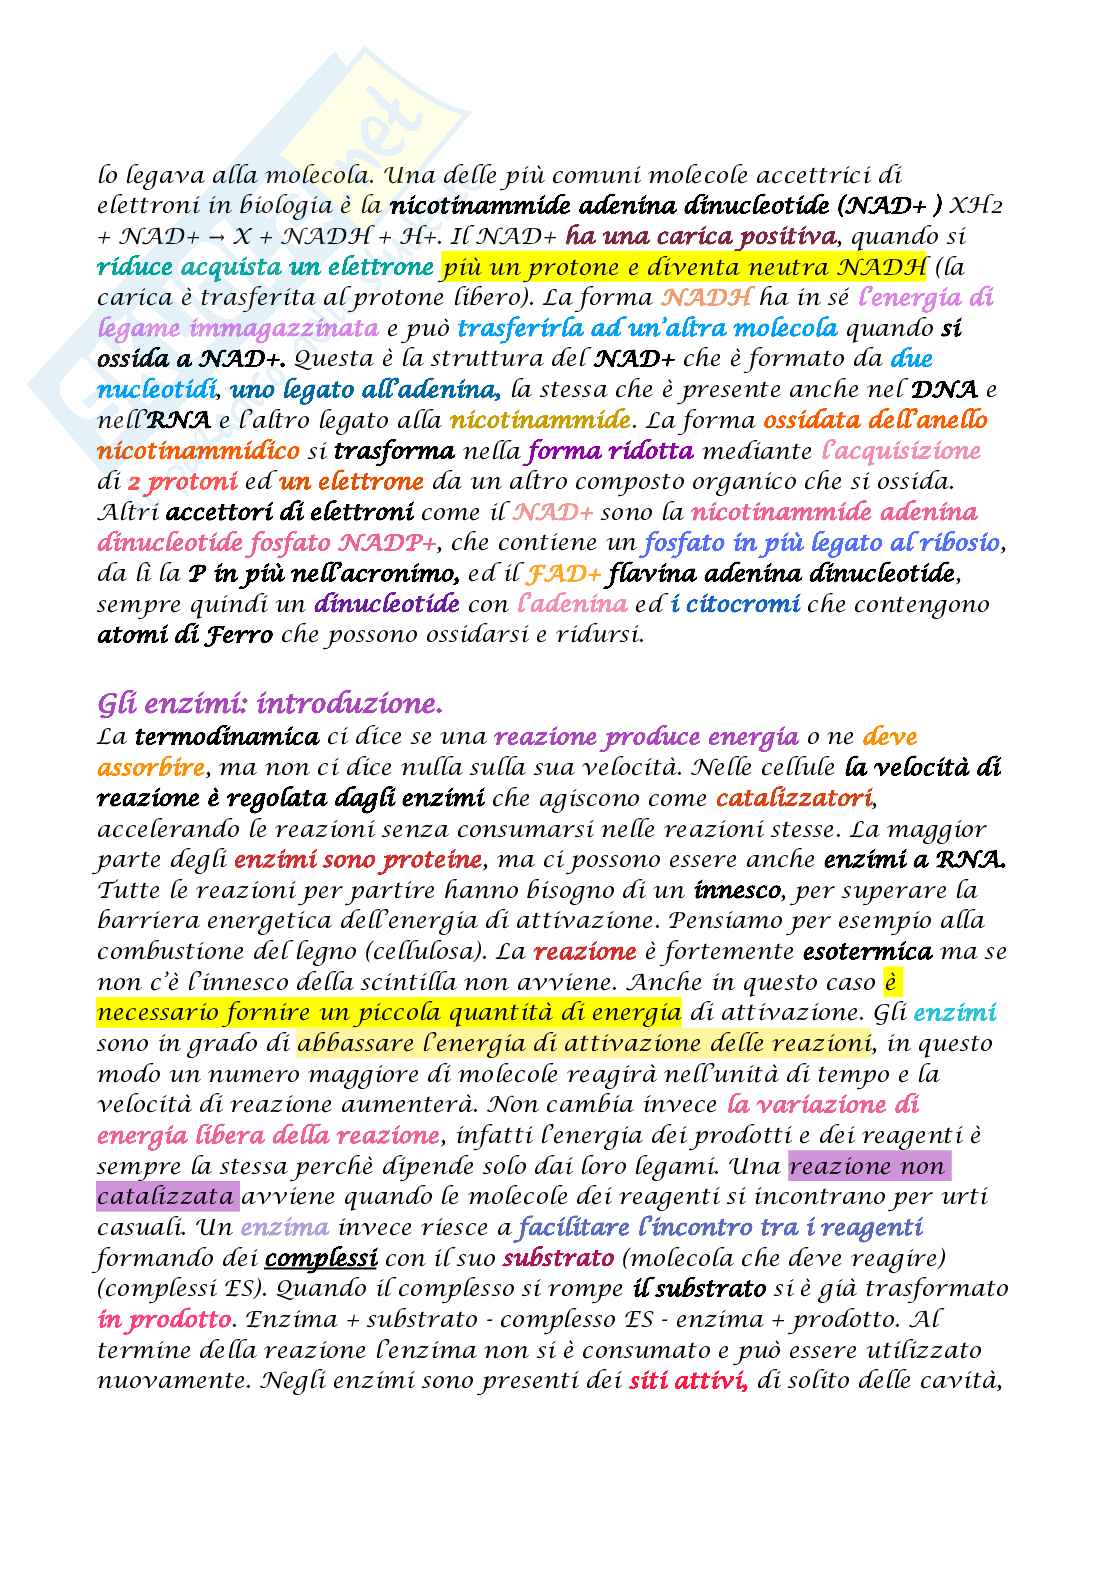 lo legava alla molecola. Una delle più comuni molecole accettrici di
elettroni in biologia è la nicotinammide adenina dinucleotide (NAD+ ) XH2
+ NAD+ → X + NADH + H+. Il NAD+ ha una carica positiva, quando si
riduce acquista un elettrone più un protone e diventa neutra NADH (la
carica è trasferita al protone libero). La forma NADH ha in sé l'energia di
legame immagazzinata e può trasferirla ad un'altra molecola quando si
ossida a NAD+. Questa è la struttura del NAD+ che è formato da due
nucleotidi, uno legato all'adenina, la stessa che è presente anche nel DNA e
nell'RNA e l'altro legato alla nicotinammide. La forma ossidata dell'anello
nicotinammidico si trasforma nella forma ridotta mediante l'acquisizione
di 2 protoni ed un elettrone da un altro composto organico che si ossida.
Altri accettori di elettroni come il NAD+ sono la nicotinammide adenina
dinucleotide fosfato NADP+, che contiene un fosfato in più legato al ribosio,
da lì la P in più nell'acronimo, ed il FAD+ flavina adenina dinucleotide,
sempre quindi un dinucleotide con l'adenina ed i citocromi che contengono
atomi di Ferro che possono ossidarsi e ridursi.
Gli enzimi: introduzione.
La termodinamica ci dice se una reazione produce energia o ne deve
assorbire, ma non ci dice nulla sulla sua velocità. Nelle cellule la velocità di
reazione è regolata dagli enzimi che agiscono come catalizzatori,
accelerando le reazioni senza consumarsi nelle reazioni stesse. La maggior
parte degli enzimi sono proteine, ma ci possono essere anche enzimi a RNA.
Tutte le reazioni per partire hanno bisogno di un innesco, per superare la
barriera energetica dell'energia di attivazione. Pensiamo per esempio alla
combustione del legno (cellulosa). La reazione è fortemente esotermica ma se
non c'è l'innesco della scintilla non avviene. Anche in questo caso è
necessario fornire un piccola quantità di energia di attivazione. Gli enzimi
sono in grado di abbassare l'energia di attivazione delle reazioni, in questo
modo un numero maggiore di molecole reagirà nell'unità di tempo e la
velocità di reazione aumenterà. Non cambia invece la variazione di
energia libera della reazione, infatti l'energia dei prodotti e dei reagenti è
sempre la stessa perchè dipende solo dai loro legami. Una reazione non
catalizzata avviene quando le molecole dei reagenti si incontrano per urti
casuali. Un enzima invece riesce a facilitare l'incontro tra i reagenti
formando dei complessi con il suo substrato (molecola che deve reagire)
(complessi ES). Quando il complesso si rompe il substrato si è già trasformato
in prodotto. Enzima + substrato - complesso ES - enzima + prodotto. Al
termine della reazione l'enzima non si è consumato e può essere utilizzato
nuovamente. Negli enzimi sono presenti dei siti attivi, di solito delle cavità,